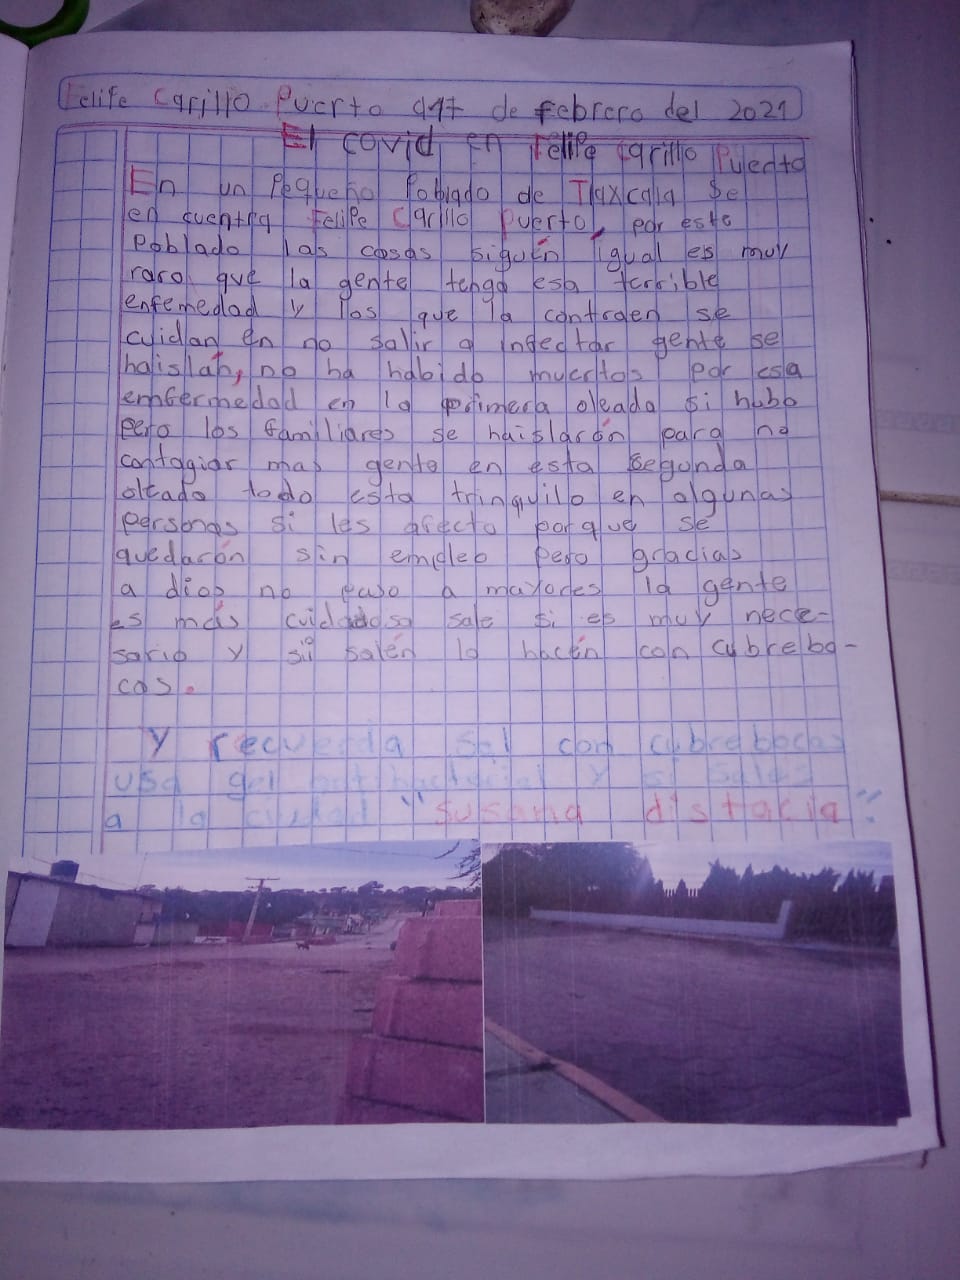 Felife Carillo Puerto a 17 de febrero del 2021
El covid en Felipe Carillo Puerto
En un Pequeño Poblado de Tlaxcala se
en cuentra Felipe Carillo Puerto, por este
poblado las cosas siguén igual es muy
raro que la gente tenga esa terrible
enfemedad y los que la contraen se
cuidan en no salir a infectar gente se
haislán, no ha habido muertos por esa
emfermedad en la primera oleada si hubo
pero los familiares se haislarón para no
contagiar mas gente en esta segunda
oleada todo esta trinquilo en algunas
personas si les afecto porque se
quedarón sin empleo pero gracias
a dios no paso a mayores la gente
es más cuidadosa sale si es muy nece-
sario y si salén lo hacén con cubrebo-
cas.
Y recuerda sal con cubrebocas
usa gel antibacterial y si sales
a la ciudad "susana distacia"